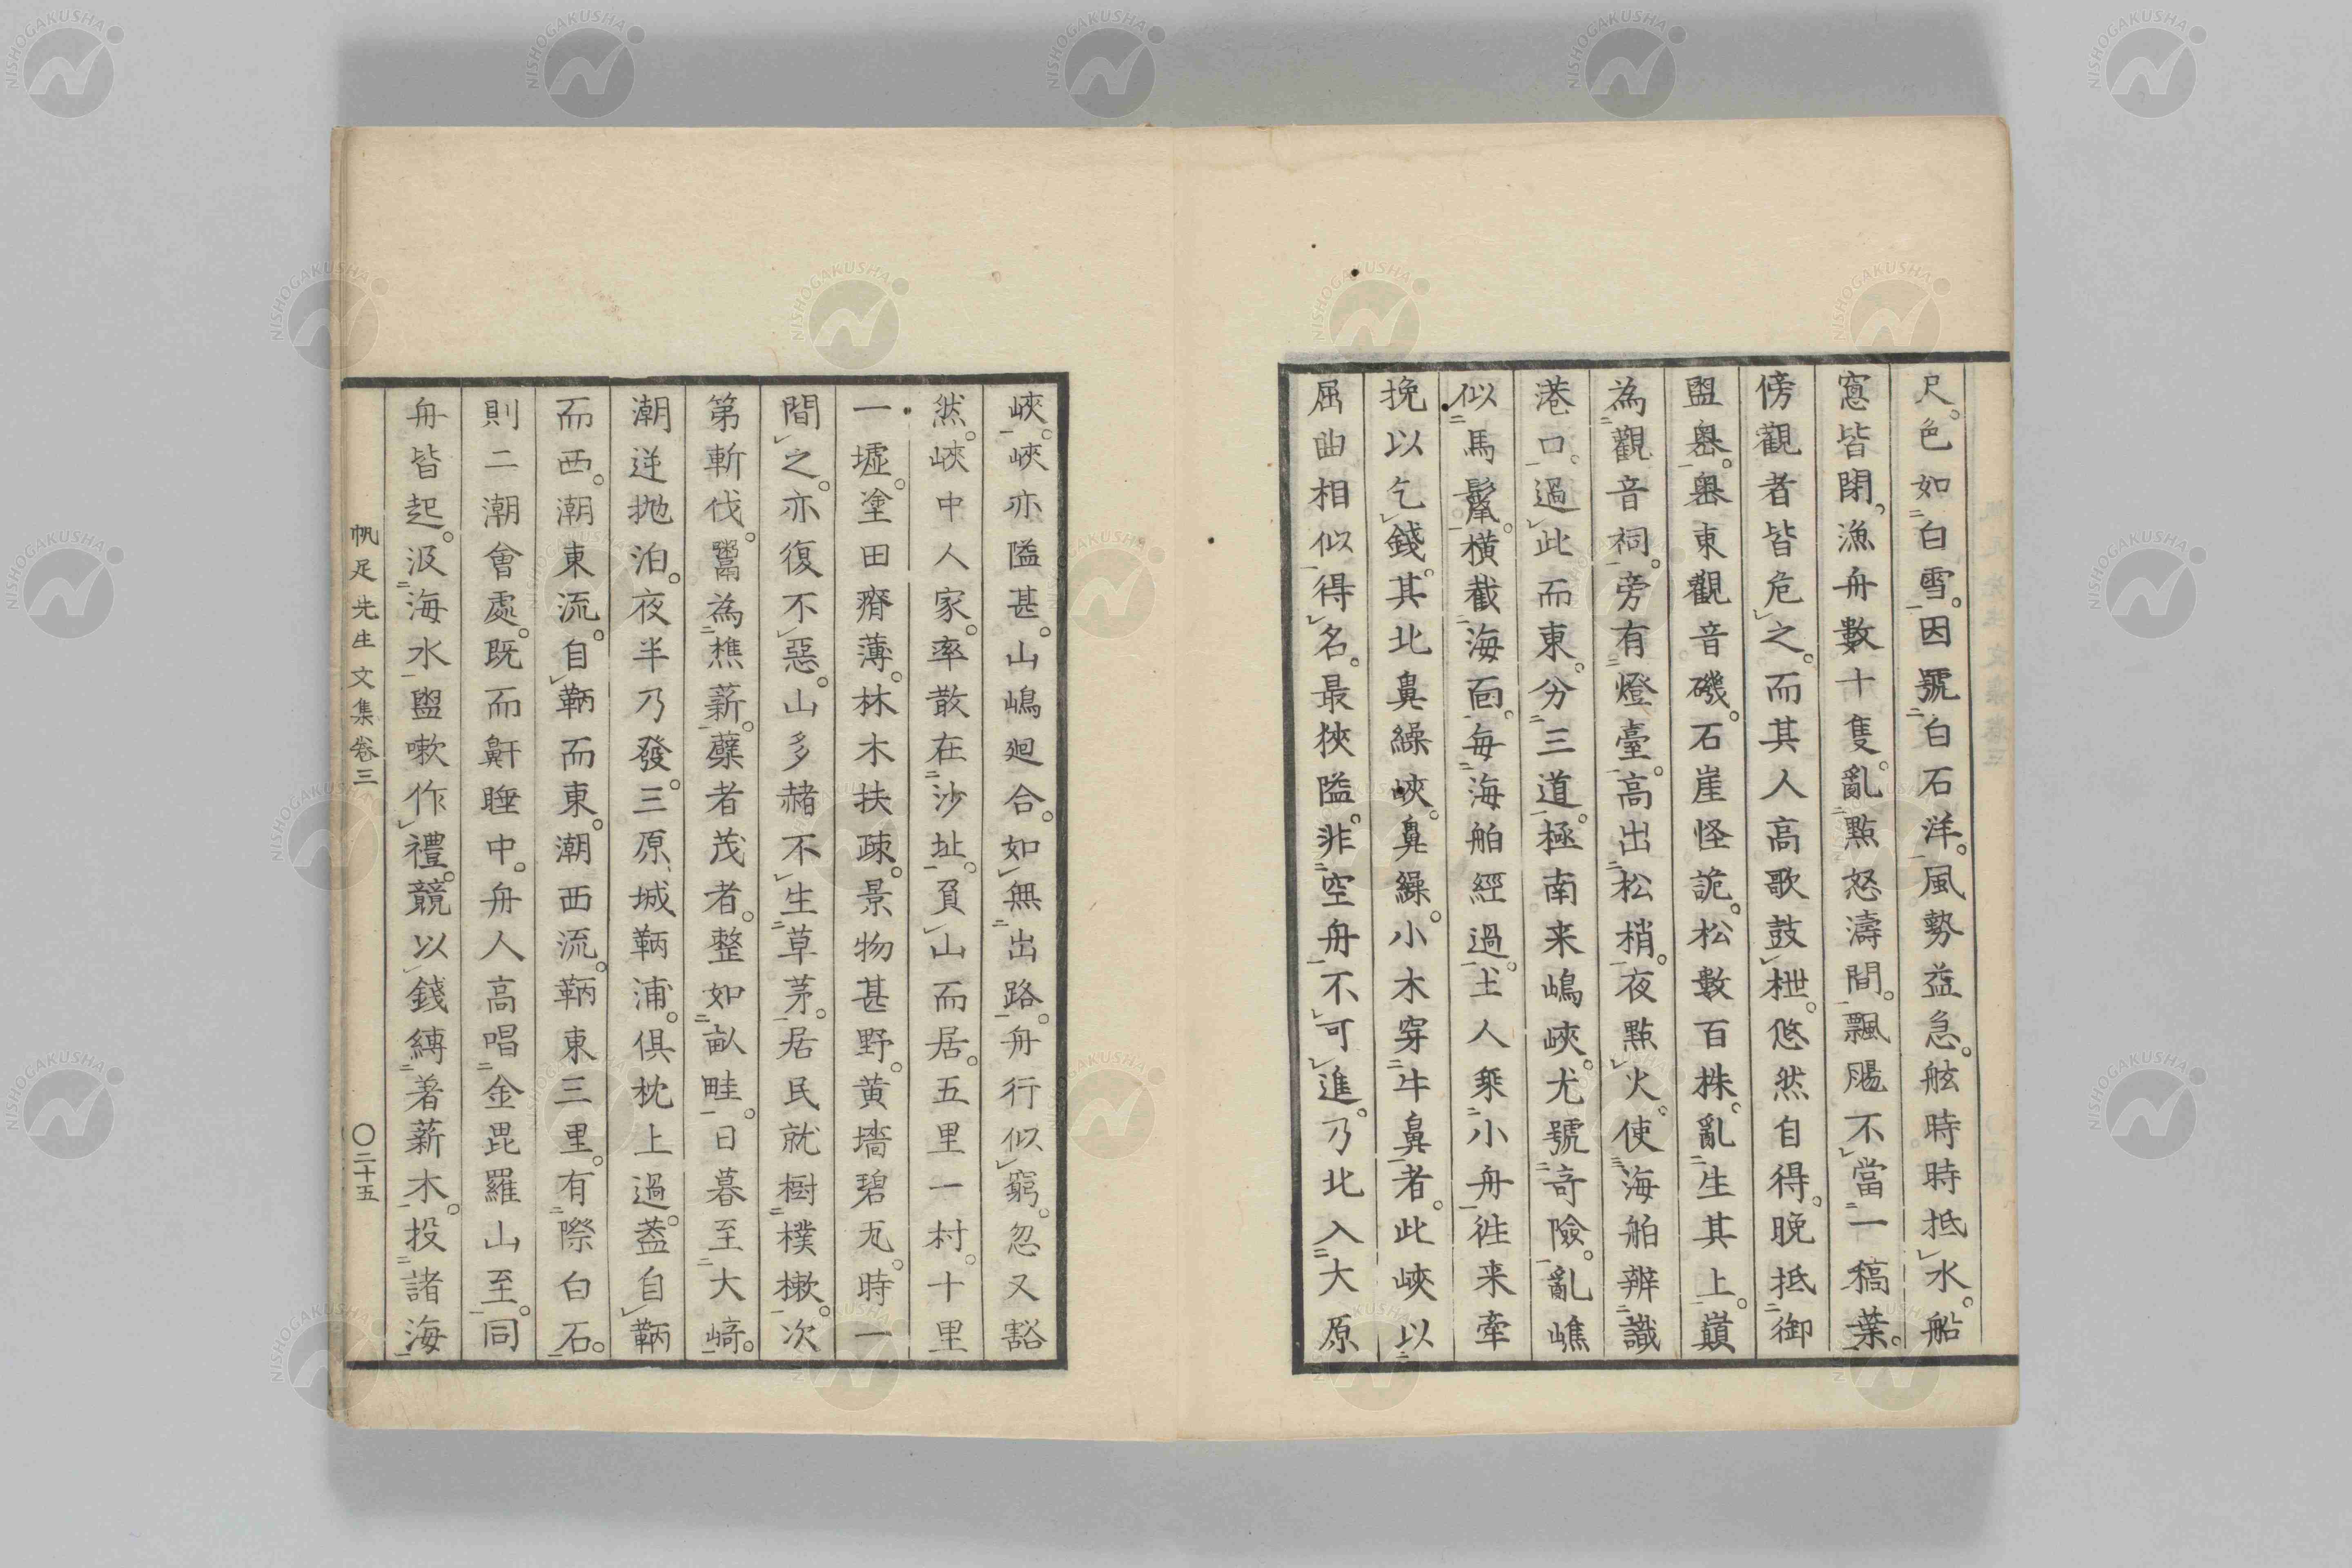 尺。色如白雪。因號白石洋。風勢益急。舷時時抵水。船
窓皆閉。漁舟數十隻。亂點怒濤間。飄颺不當一稿葉。
傍觀者皆危之。而其人高歌鼓枻。悠然自得。晚抵御
盥㟁。㟁東觀音磯。石崖怪詭。松數百株。亂生其上。巔
為觀音祠。旁有燈臺。高出松梢。夜點火。使海舶辨識
港口。過此而東。分三道。極南来嶋峽。尤號奇險。亂嶕
似馬鬣。橫截海面。每海舶經過。土人乘小舟徃来牽
挽以乞錢。其北鼻繰峽。鼻繰。小木穿牛鼻者。此峽以
屈曲相似得名。最狹隘。非空舟不可進。乃北入大原
峽。峽亦隘甚。山嶋廻合。如無出路。舟行似窮。忽又豁
然。峽中人家。率散在沙址。負山而居。五里一村。十里
一墟。塗田瘠薄。林木扶疎。景物甚野。黄墻碧瓦。時一
間之。亦復不惡。山多赭不生草茅。居民就樹樸樕。次
第斬伐。鬻為樵薪。蘖者茂者。整如畝畦。日暮至大﨑。
潮逆抛泊。夜半乃發。三原城鞆浦。俱枕上過。葢自鞆
而西。潮東流。自鞆而東。潮西流。鞆東三里。有際白石。
則二潮會處。既而鼾睡中。舟人高唱金毘羅山至。同
舟皆起。汲海水盥嗽作禮。競以錢縛著薪木。投諸海
帆足先生文集卷三
〇二十五
NISHOGAKUSHA